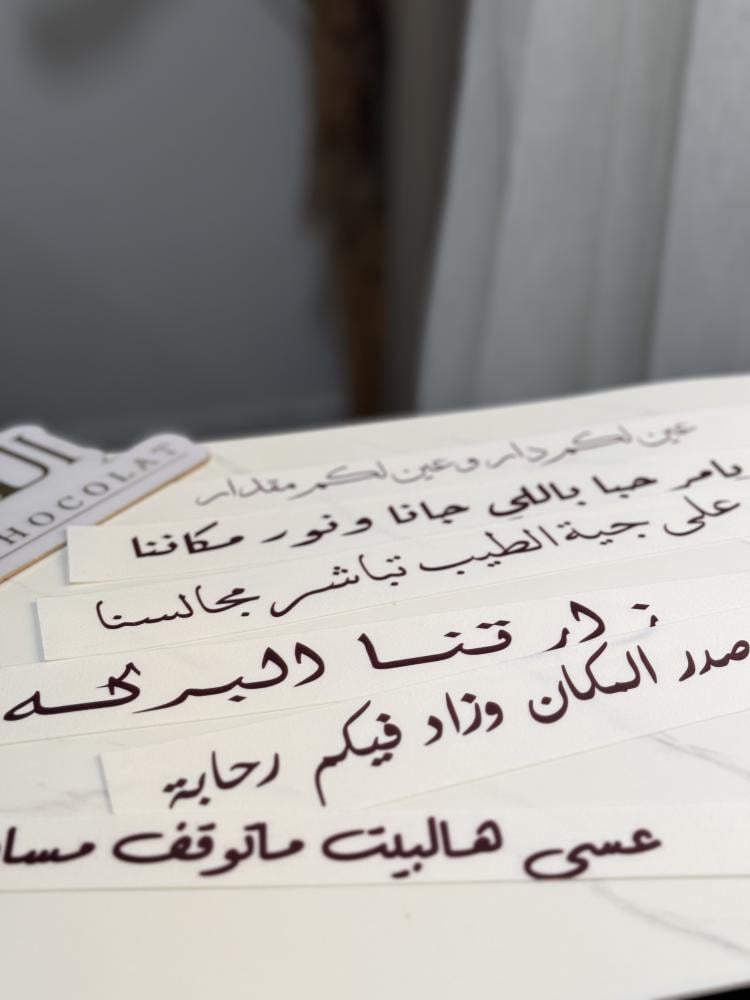 عين لكم دار وعين لكم مقدار
يامر حبا باللي جانا ونور مكاننا
على جية الطيب تباشر مجالسنا
زارتنا البركه
صدر المكان وزاد فيكم رحابة
عسى هالبيت ماتوقف
CHOCOLAT